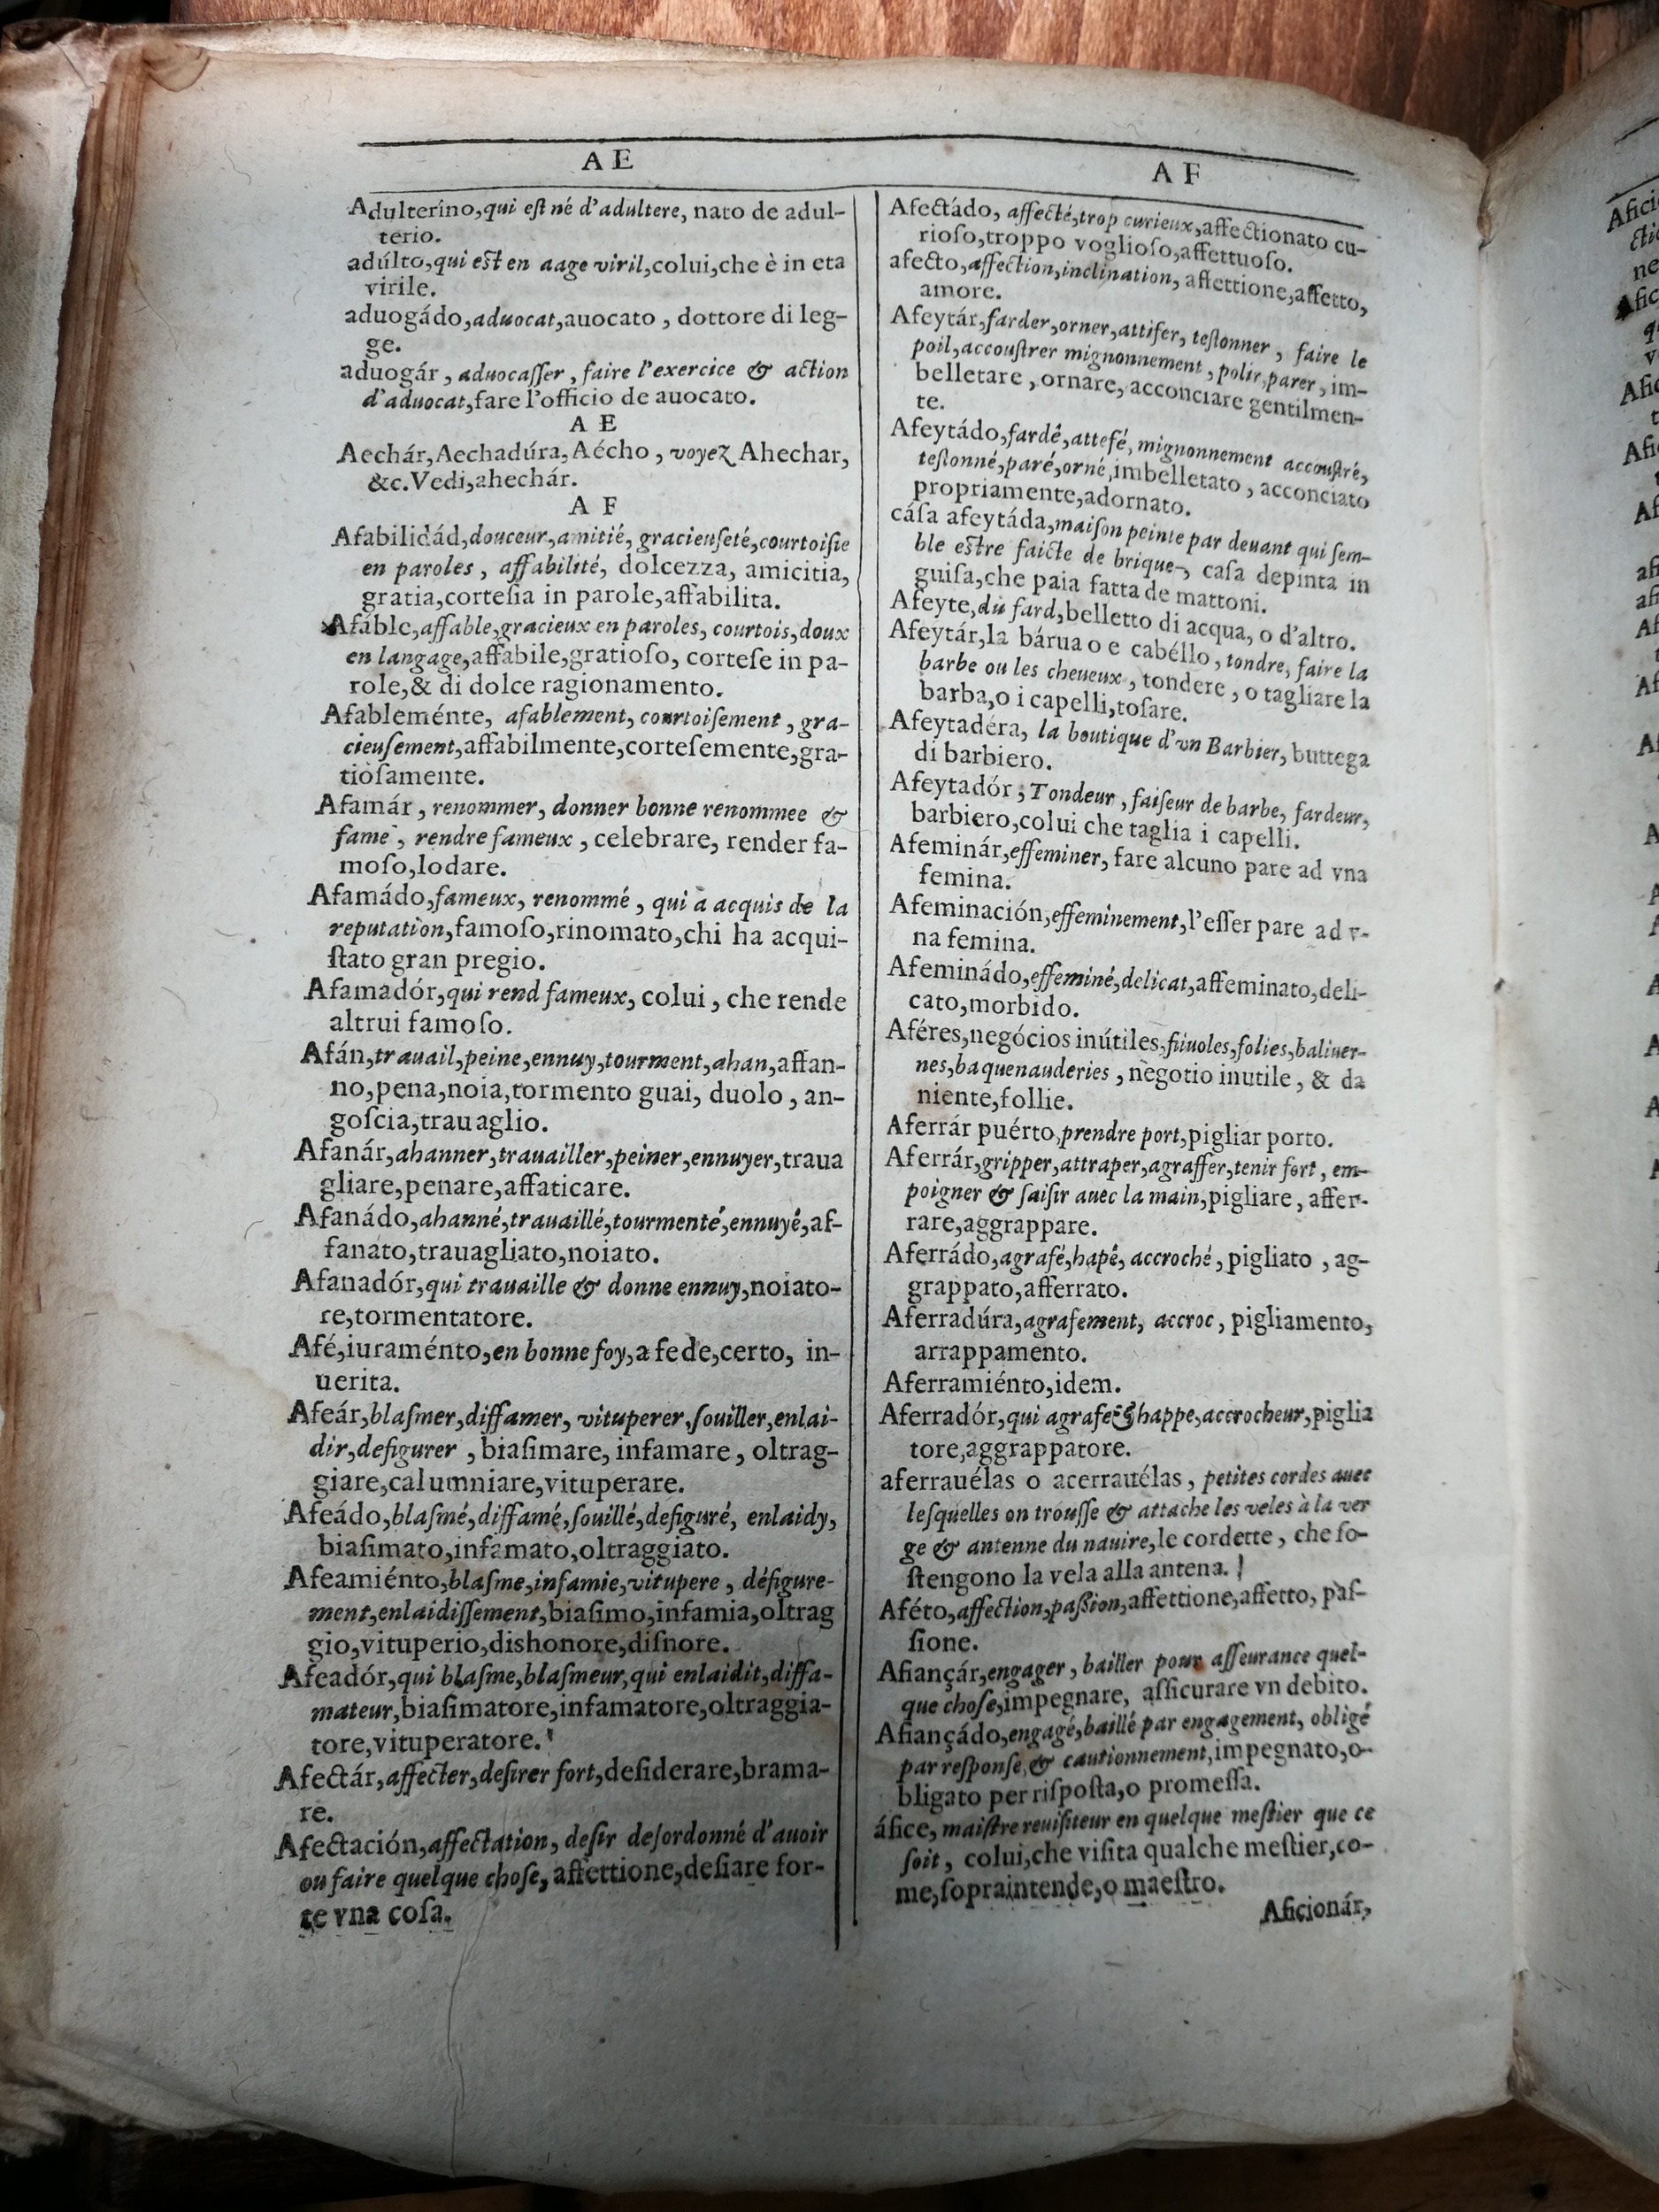 A E
Adulteríno,qui eſt né d'adultere, nato de adul-
terio.
adúlto,qui est en aage viril,colui,che è in eta
virile.
aduogádo,aduocat,auocato , dottore di leg-
ge.
aduogár , aduocaſſer , faire l'exercice & action
d'aduocat,fare l'officio de auocato.
A E
Aechár,Aechadúra,Aécho , voyez Ahechar,
&c.Vedi,ahechár.
A F
Afabilidád,douceur,amitié, gracieuſeté,courtoiſie
en paroles , affabilité, dolcezza, amicitia,
gratia,corteſia in parole,affabilita.
Afáble,affable,gracieux en paroles, courtois,doux
en langage,affabile,gratioſo, corteſe in pa-
role,& di dolce ragionamento.
Afableménte, afablement, courtoiſement , gra-
cieuſement,affabilmente,corteſemente,gra-
tioſamente.
Afamár , renommer, donner bonne renommee &
fame , rendre fameux , celebrare, render fa-
moſo,lodare.
Afamádo,fameux, renommé , qui a acquis de la
reputation,famoſo,rinomato,chi ha acqui-
ſtato gran pregio.
Afamadór,qui rend fameux, colui , che rende
altrui famoſo.
Afán,trauail,peine,ennuy,tourment,ahan,affan-
no,pena,noia,tormento guai, duolo , an-
goſcia,trauaglio.
Afanár,ahanner,trauailler,peiner,ennuyer,traua
gliare,penare,affaticare.
Afanádo,ahanné,trauaillé,tourmenté,ennuyé,af-
fanato,trauagliato,noiato.
Afanadór,qui trauaille & donne ennuy,noiato-
re,tormentatore.
Afé,iuraménto,en bonne foy,a fede,certo, in-
uerita.
Afeár,blaſmer,diffamer, vituperer,ſouiller,enlai-
dir,defigurer , biaſimare, infamare , oltrag-
giare,calumniare,vituperare.
Afeádo,blaſmé,diffamé,ſouillé,defiguré, enlaidy,
biaſimato,infamato,oltraggiato.
Afeamiénto,blaſme,infamie,vitupere , défigure-
ment,enlaidiſſement,biaſimo,infamia,oltrag
gio,vituperio,dishonore,diſnore.
Afeadór,qui blaſme,blaſmeur,qui enlaidit,diffa-
mateur,biaſimatore,infamatore,oltraggia-
tore,vituperatore.
Afectár,affecter,deſirer fort,deſiderare,brama-
re.
Afectación,affectation, deſir deſordonné d'auoir
ou faire quelque choſe, affettione,deſiare for-
te vna coſa.
A F
Afectádo, affecté,trop curieux,affectionato cu-
rioſo,troppo voglioſo,affettuoſo.
afecto,affection,inclination, affettione,affetto,
amore.
Afeytár,farder,orner,attifer, teſtonner , faire le
poil,accouſtrer mignonnement , polir,parer , im-
belletare , ornare, acconciare gentilmen-
te.
Afeytádo,fardé,attefé, mignonnement accouſtré,
teſtonné,paré,orné,imbelletato , acconciato
propriamente,adornato.
cáſa afeytáda,maiſon peinte par deuant qui ſem-
ble estre faicte de brique-, caſa depinta in
guiſa,che paia fatta de mattoni.
Afeyte,du fard,belletto di acqua, o d'altro.
Afeytár,la bárua o e cabéllo , tondre, faire la
barbe ou les cheueux , tondere , o tagliare la
barba,o i capelli,toſare.
Afeytadéra, la boutique d'vn Barbier, buttega
di barbiero.
Afeytadór , Tondeur , faiſeur de barbe, fardeur,
barbiero,colui che taglia i capelli.
Afeminár,effeminer, fare alcuno pare ad vna
femina.
Afeminación,effeminement,l'eſſer pare ad v-
na femina.
Afeminádo,effeminé,delicat,affeminato,deli-
cato,morbido.
Aféres,negócios inútiles,friuoles,folies,baliuer-
nes,baquenauderies , negotio inutile , & da
niente,follie.
Aferrár puérto,prendre port,pigliar porto.
Aferrár,gripper,attraper,agraffer,tenir fort , em-
poigner & ſaiſir auec la main,pigliare , affer-
rare,aggrappare.
Aferrádo,agrafé,hapé, accroché , pigliato , ag-
grappato,afferrato.
Aferradúra,agrafement, accroc , pigliamento,
arrappamento.
Aferramiénto,idem.
Aferradór,qui agrafe & happe,accrocheur,piglia
tore,aggrappatore.
aferrauélas o acerrauélas , petites cordes auec
leſquelles on trouſſe & attache les veles à la ver
ge & antenne du nauire,le cordette , che ſo-
ſtengono la vela alla antena.
Aféto,affection,paſsion,affettione,affetto, paſ-
ſione.
Afiançár,engager , bailler pour aſſeurance quel-
que choſe,impegnare, aſſicurare vn debito.
Afiançádo,engagé,baillé par engagement, obligé
par reſponſe,& cautionnement,impegnato,o-
bligato per riſpoſta,o promeſſa.
áfice, maiſtre reuiſiteur en quelque meſtier que ce
ſoit , colui,che viſita qualche meſtier,co-
me,ſopraintende,o maeſtro.
Aficionár,